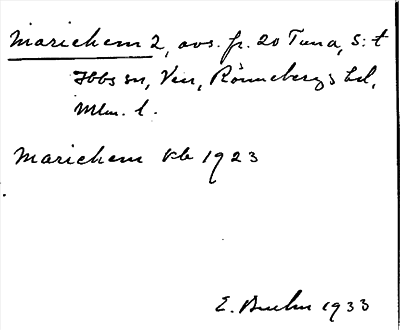 Mariehem 2, avs. fr. 20 Tuna, S:t
Ibbs sn, Ven, Rönnebergs hd,
Mlm. l.
Mariehem kb 1923
E. Bruhn 1933